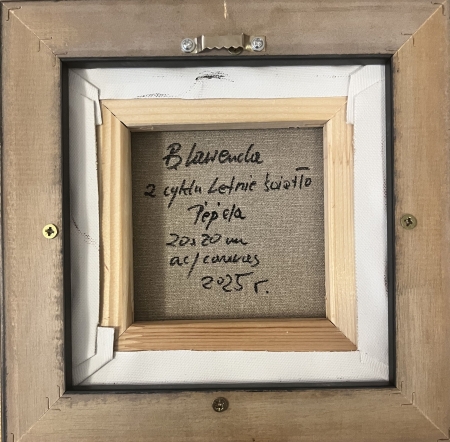 B Lawenda
z cyklu Letnie światło
20x20 cm
ac/canvas
2025 r.